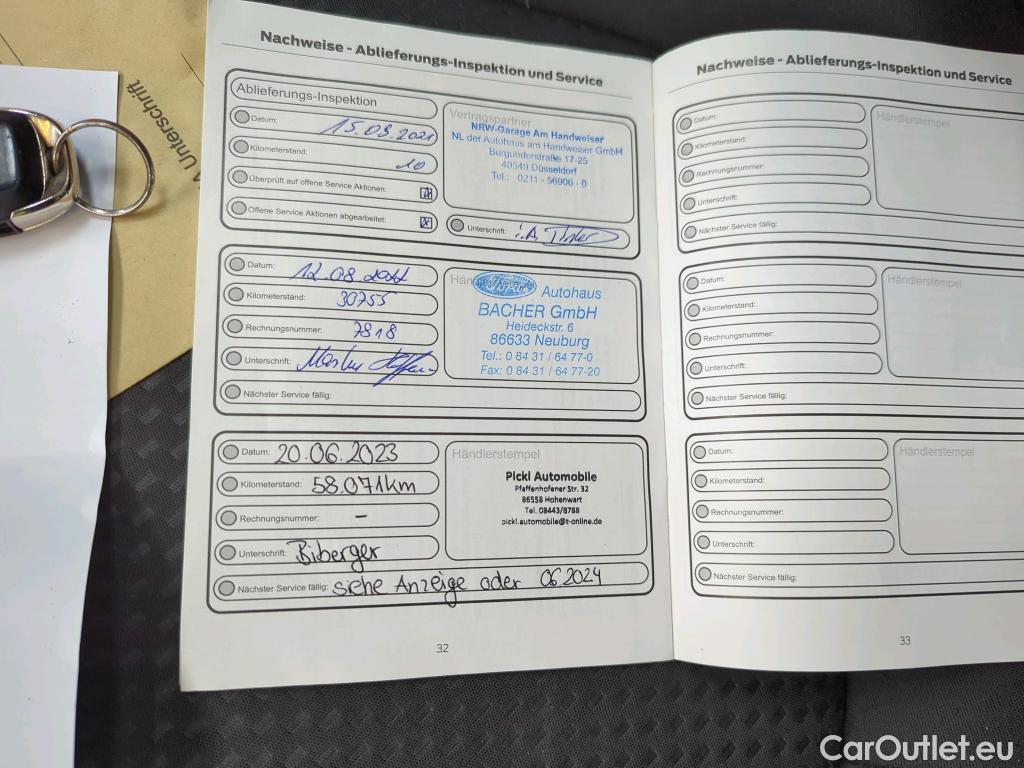 Unterschrift
Nachweise - Ablieferungs-Inspektion und Service
Ablieferungs-Inspektion
Datum: 15.09.2021
Kilometerstand: 10
Überprüft auf offene Service Aktionen: x
Offene Service Aktionen abgearbeitet: x
Vertragspartner
NRW-Garage Am Handweiser
NL der Autohaus am Handweiser GmbH
Burgunderstraße 17-25
40549 Düsseldorf
Tel.: 0211 - 56906 - 0
Unterschrift: i.A.
Datum: 12.08.2022
Kilometerstand: 30755
Rechnungsnummer: 7818
Unterschrift:
Nächster Service fällig:
Ford Autohaus
BACHER GmbH
Heideckstr. 6
86633 Neuburg
Tel.: 0 84 31 / 64 77-0
Fax: 0 84 31 / 64 77-20
Datum: 20.06.2023
Kilometerstand: 58.071km
Rechnungsnummer: –
Unterschrift: Biberger
Nächster Service fällig: siehe Anzeige oder 06.2024
Händlerstempel
Pickl Automobile
Pfaffenhofener Str. 32
86558 Hohenwart
Tel. 08443/8788
pickl.automobile@t-online.de
32
Nachweise - Ablieferungs-Inspektion und Service
Datum:
Kilometerstand:
Rechnungsnummer:
Unterschrift:
Nächster Service fällig:
Händlerstempel
Datum:
Kilometerstand:
Rechnungsnummer:
Unterschrift:
Nächster Service fällig:
Händlerstempel
Datum:
Kilometerstand:
Rechnungsnummer:
Unterschrift:
Nächster Service fällig:
Händlerstempel
33
CarOutlet.eu